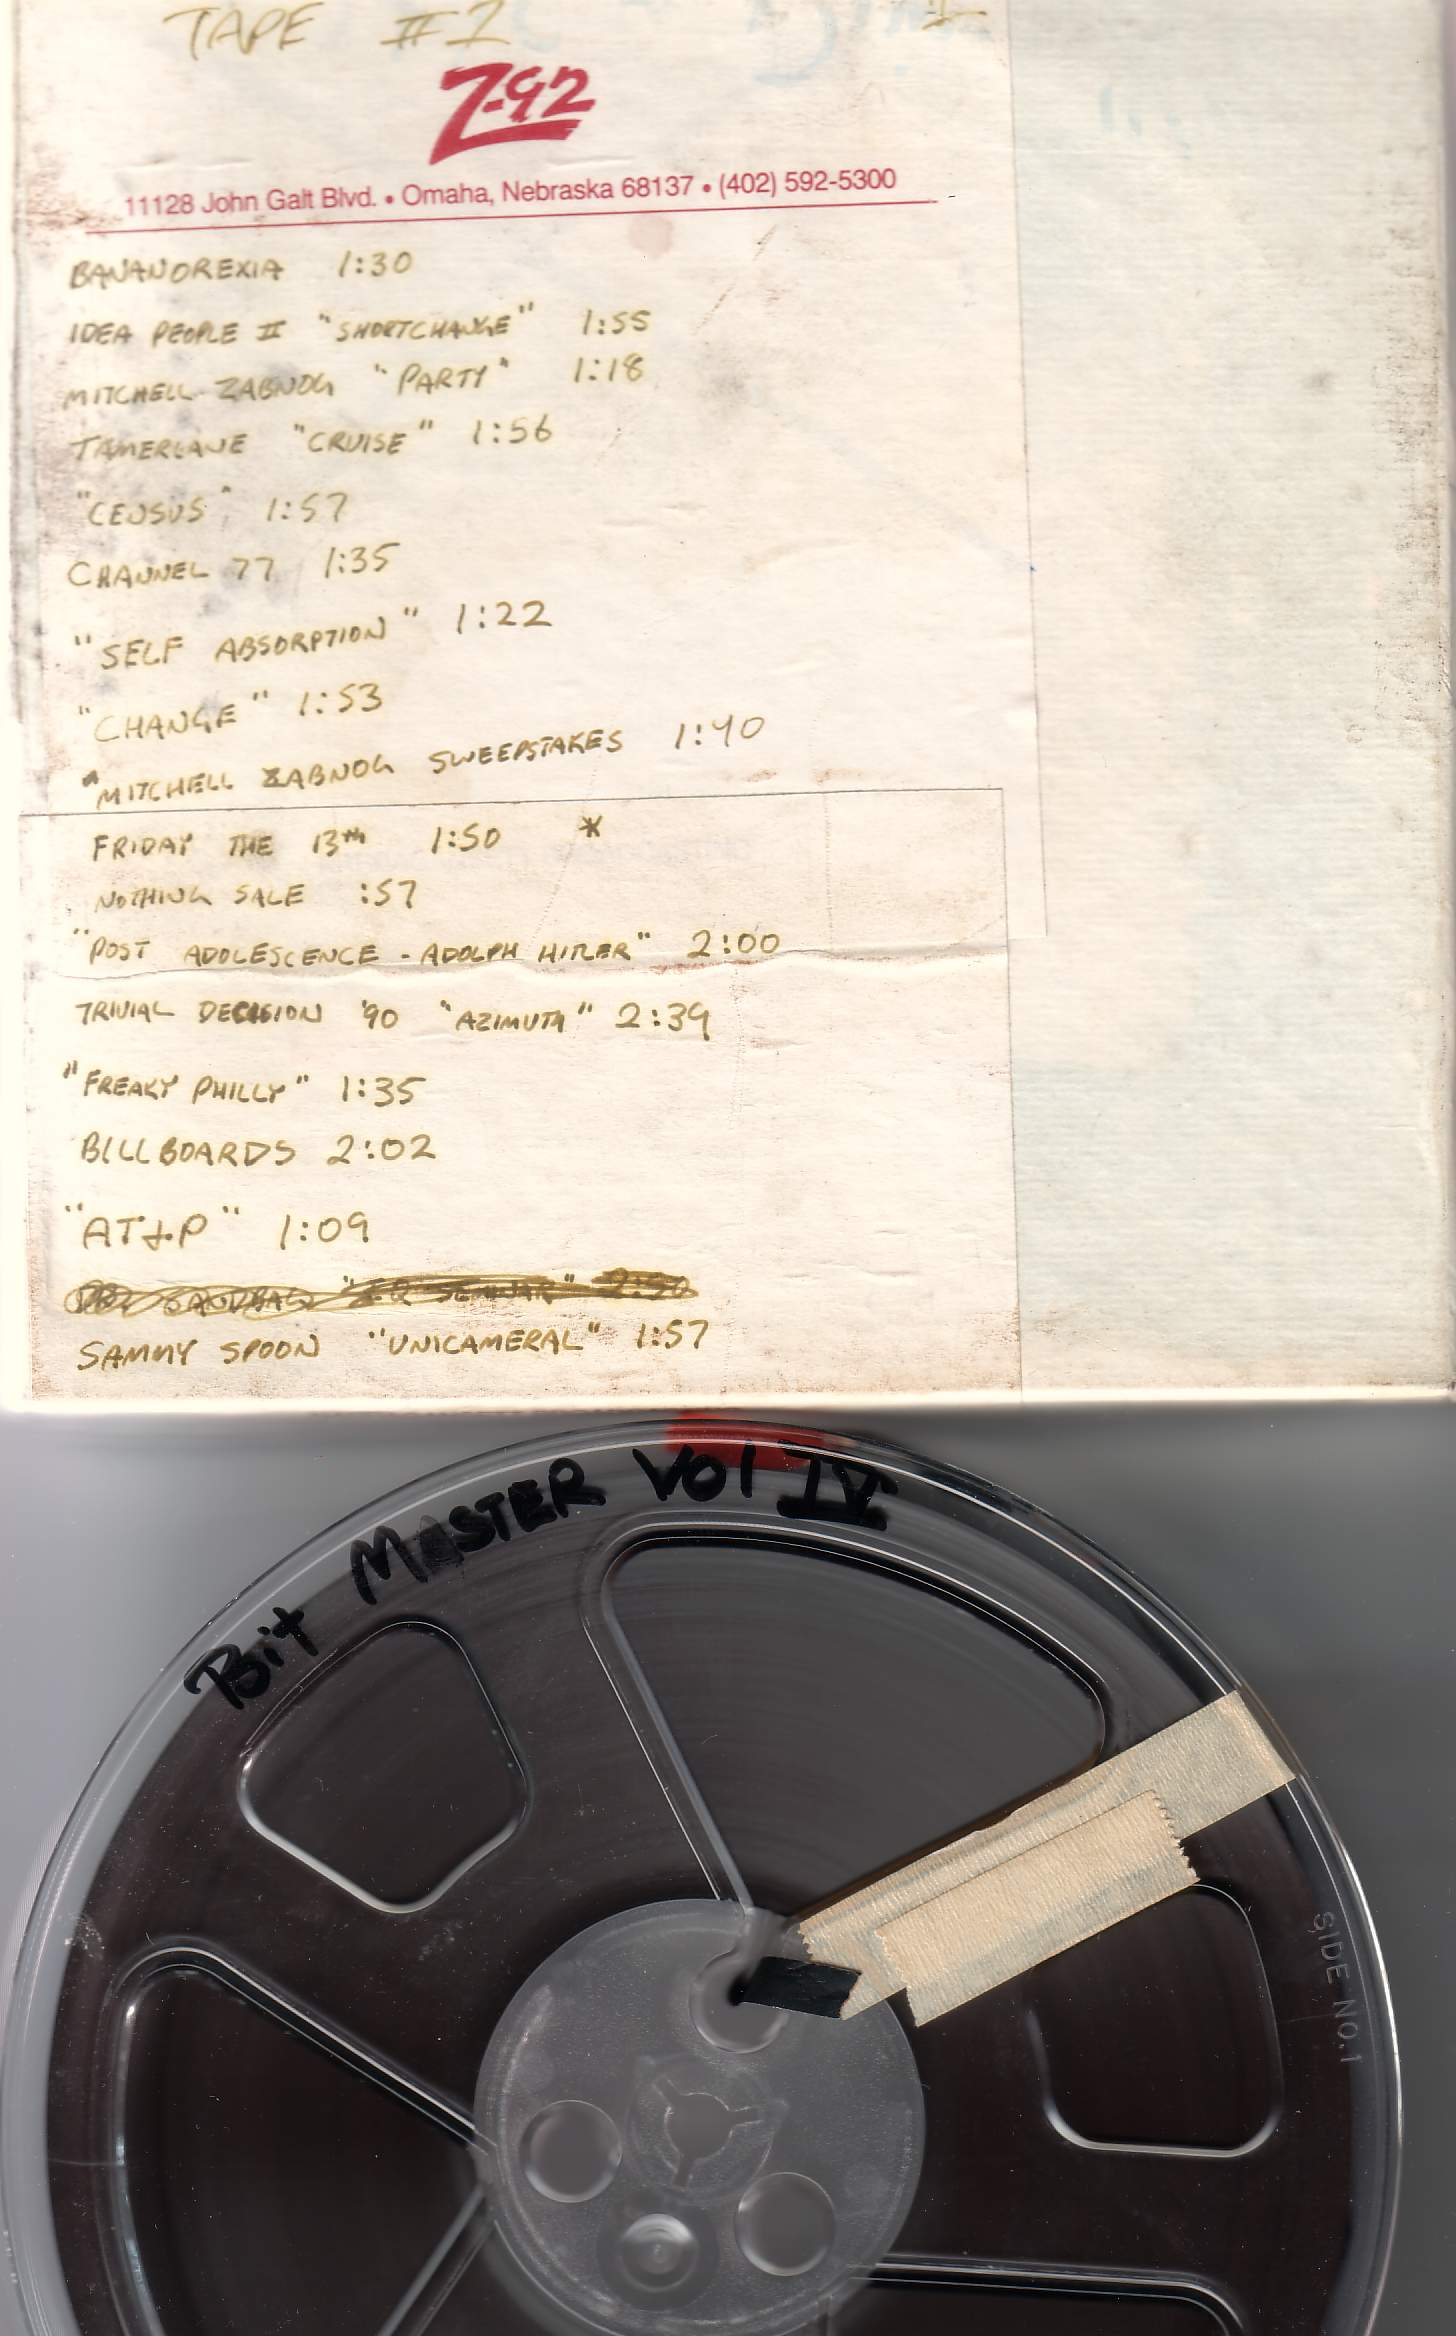 TAPE #1
Z-92
11128 John Galt Blvd. • Omaha, Nebraska 68137 • (402) 592-5300
BANANOREXIA 1:30
IDEA PEOPLE II "SHORTCHANGE" 1:55
MITCHELL ZABNOG "PARTY" 1:18
TAMERLANE "CRUISE" 1:56
"CENSUS" 1:57
CHANNEL 77 1:35
"SELF ABSORPTION" 1:22
"CHANGE" 1:53
"MITCHELL ZABNOG SWEEPSTAKES 1:40
FRIDAY THE 13th 1:50 *
NOTHING SALE :57
"POST ADOLESCENCE - ADOLPH HITLER" 2:00
TRIVIAL DECISION '90 "AZIMUTH" 2:39
"FREAKY PHILLY" 1:35
BILLBOARDS 2:02
"AT&P" 1:09
SANDBAG
SAMMY SPOON "UNICAMERAL" 1:57
Bit MASTER Vol IV
SIDE NO. 1